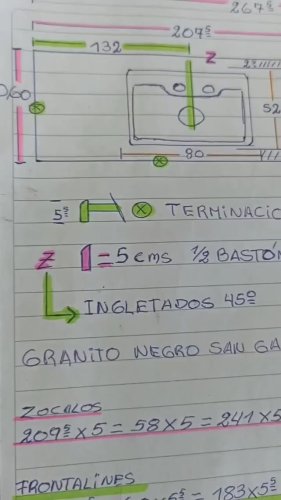 267⁵
207⁵
132
Z
2
0,60
52
80
5⁵ ⓧ TERMINACIO
Z = 5 cms ½ BASTÓN
INGLETADOS 45º
GRANITO NEGRO SAN GA
ZOCALOS
209⁵ x 5 = 58 x 5 = 241 x 5
FRONTALINES
= 183 x 5⁵